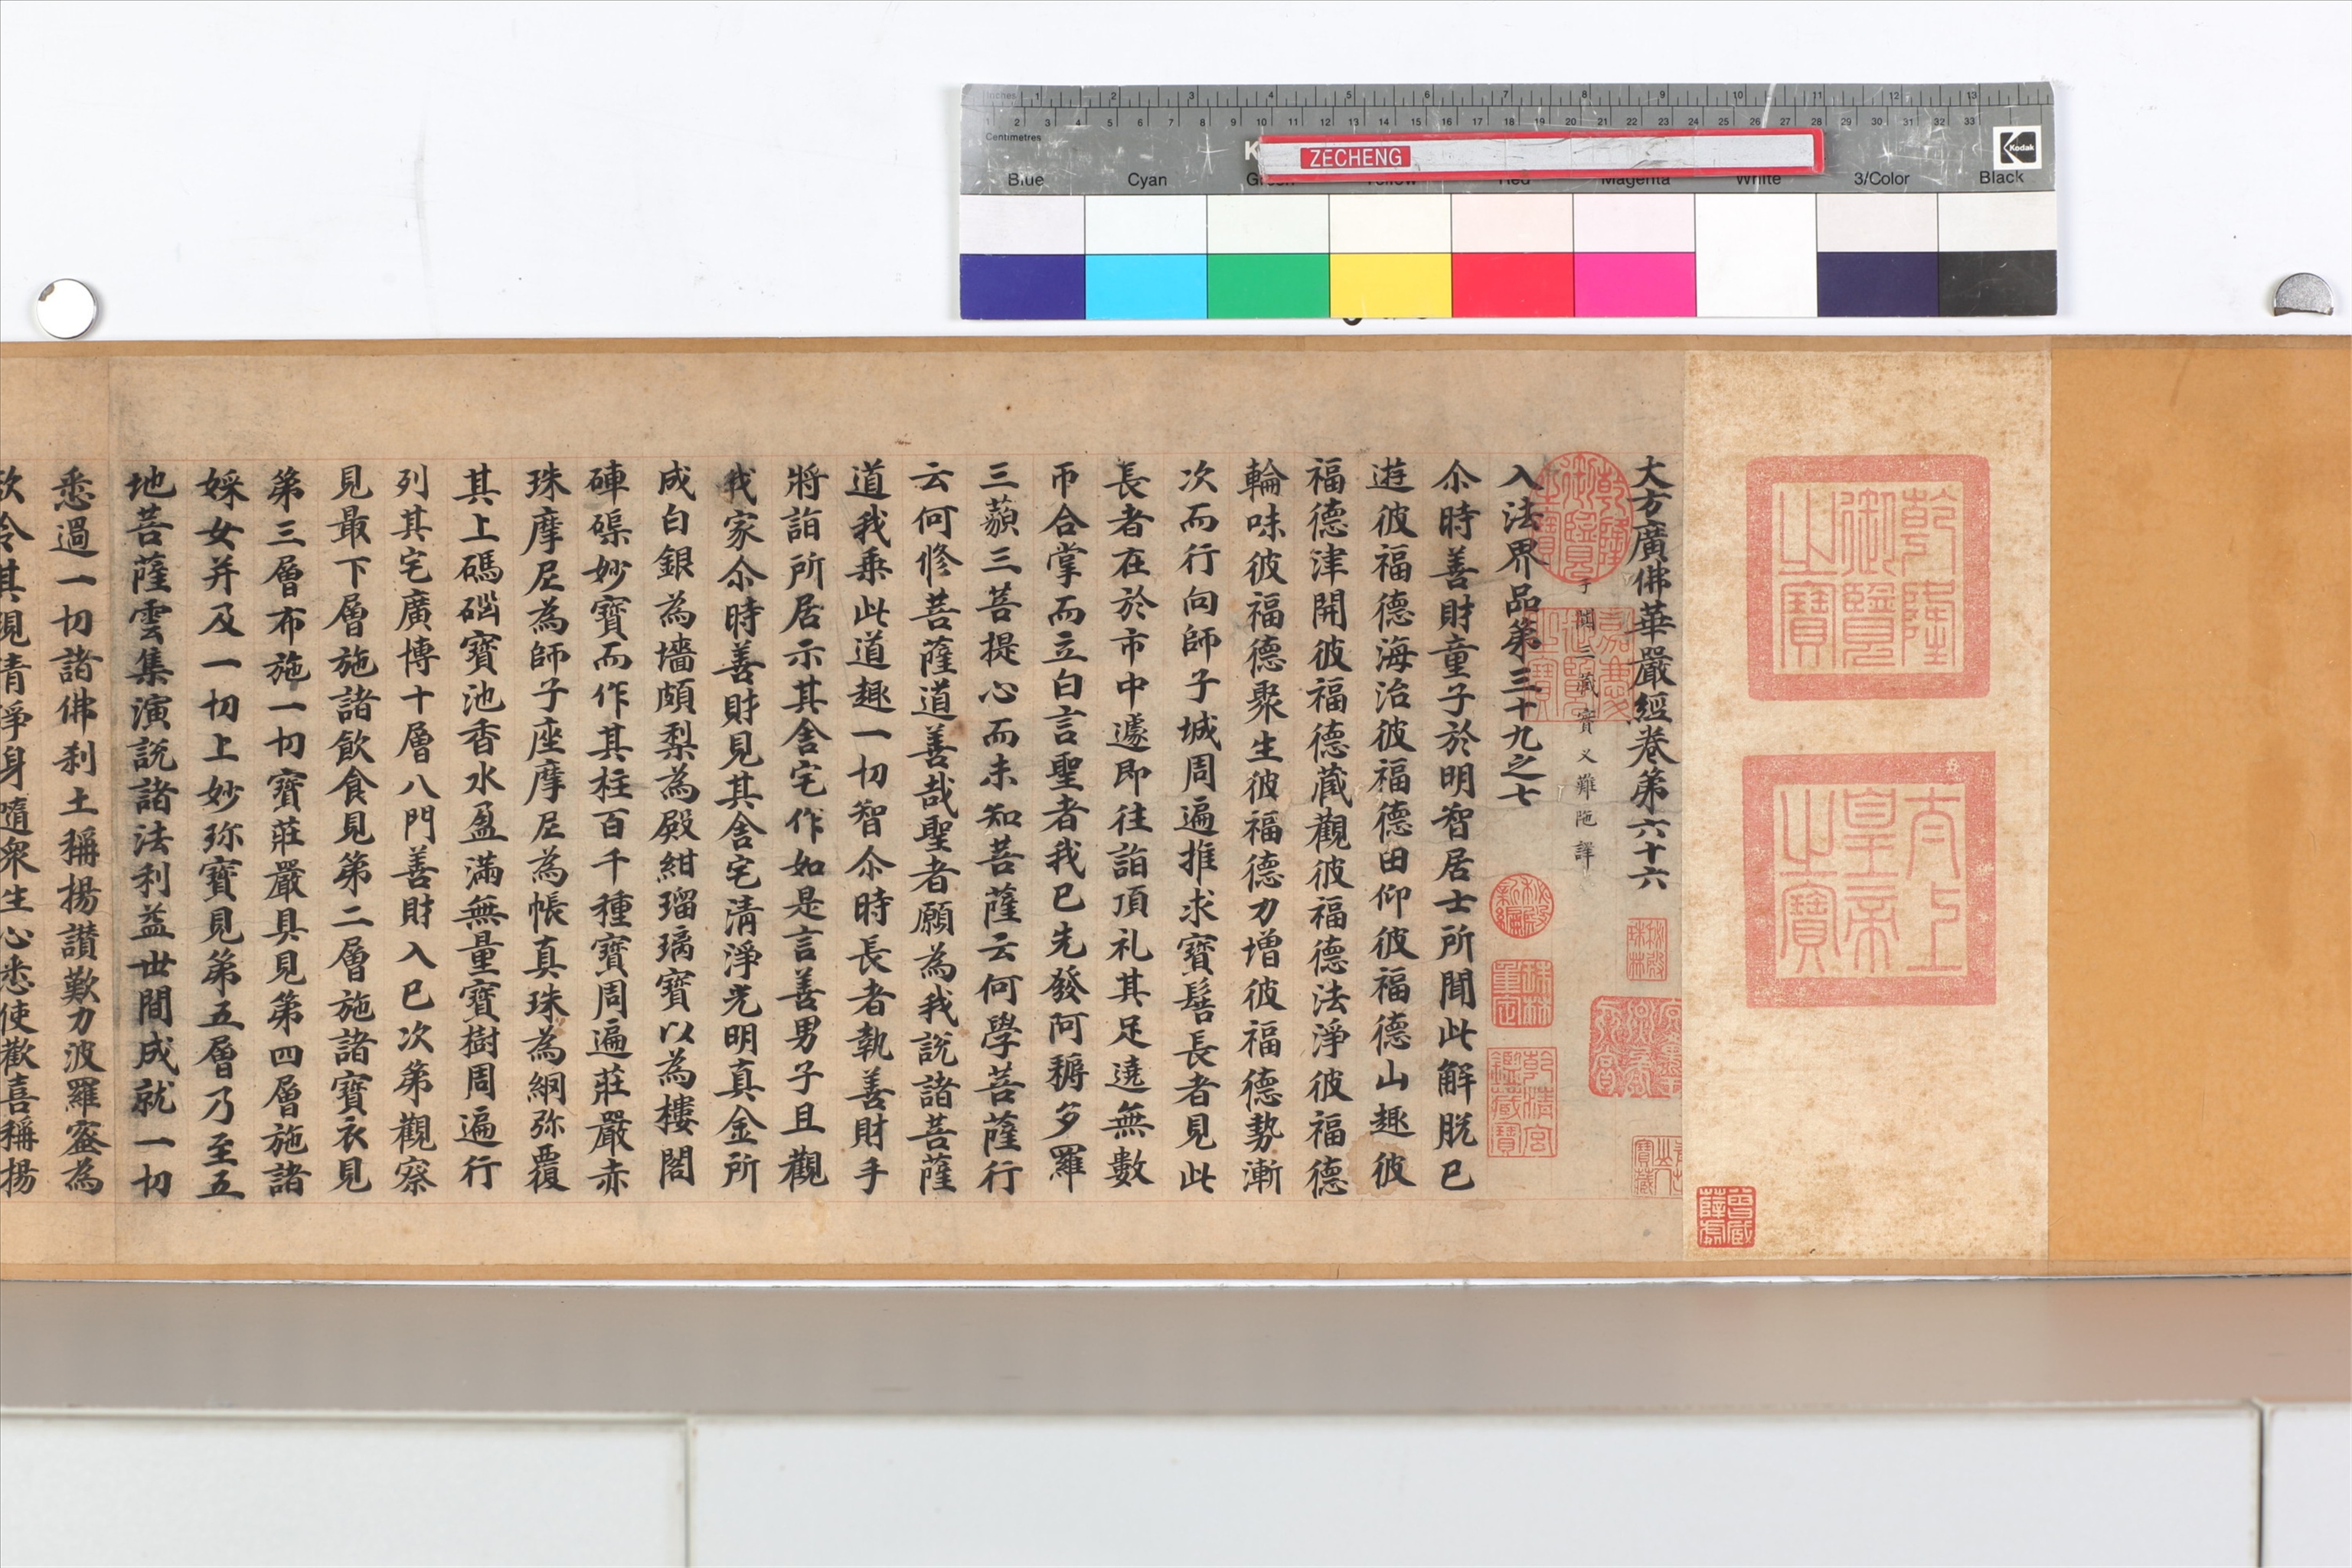 Inches 1 2 3 4 5 6 7 8 9 10 11 12 13
1 2 3 4 5 6 7 8 9 10 11 12 13 14 15 16 17 18 19 20 21 22 23 24 25 26 27 28 29 30 31 32 33
Centimetres
ZECHENG
Kodak
Blue Cyan Green Yellow Red Magenta White 3/Color Black
乾隆御覽之寶
太上皇帝之寶
大方廣佛華嚴經卷第六十六
于闐三藏實叉難陁譯
入法界品第三十九之七
尒時善財童子於明智居士所聞此解脫已
遊彼福德海治彼福德田仰彼福德山趣彼
福德津開彼福德藏觀彼福德法淨彼福德
輪味彼福德聚生彼福德力增彼福德勢漸
次而行向師子城周遍推求寶髻長者見此
長者在於市中遽即往詣頂礼其足遶無數
帀合掌而立白言聖者我已先發阿耨多羅
三藐三菩提心而未知菩薩云何學菩薩行
云何修菩薩道善哉聖者願為我說諸菩薩
道我乗此道趣一切智尒時長者執善財手
將詣所居示其舍宅作如是言善男子且觀
我家尒時善財見其舍宅清淨光明真金所
成白銀為墻頗梨為殿紺瑠璃寶以為樓閣
硨磲妙寶而作其柱百千種寶周遍莊嚴赤
珠摩尼為師子座摩尼為帳真珠為網弥覆
其上碼碯寶池香水盈滿無量寶樹周遍行
列其宅廣博十層八門善財入已次第觀察
見最下層施諸飲食見第二層施諸寶衣見
第三層布施一切寶莊嚴具見第四層施諸
婇女并及一切上妙珎寶見第五層乃至五
地菩薩雲集演說諸法利益世間成就一切
悉過一切諸佛刹土稱揚讃歎力波羅蜜為
欲令其現清淨身隨衆生心悉使歡喜稱揚
乾隆御覽之寶
嘉慶御覽之寶
秘殿珠林
秘殿新編
珠林重定
乾清宮鑒藏寶